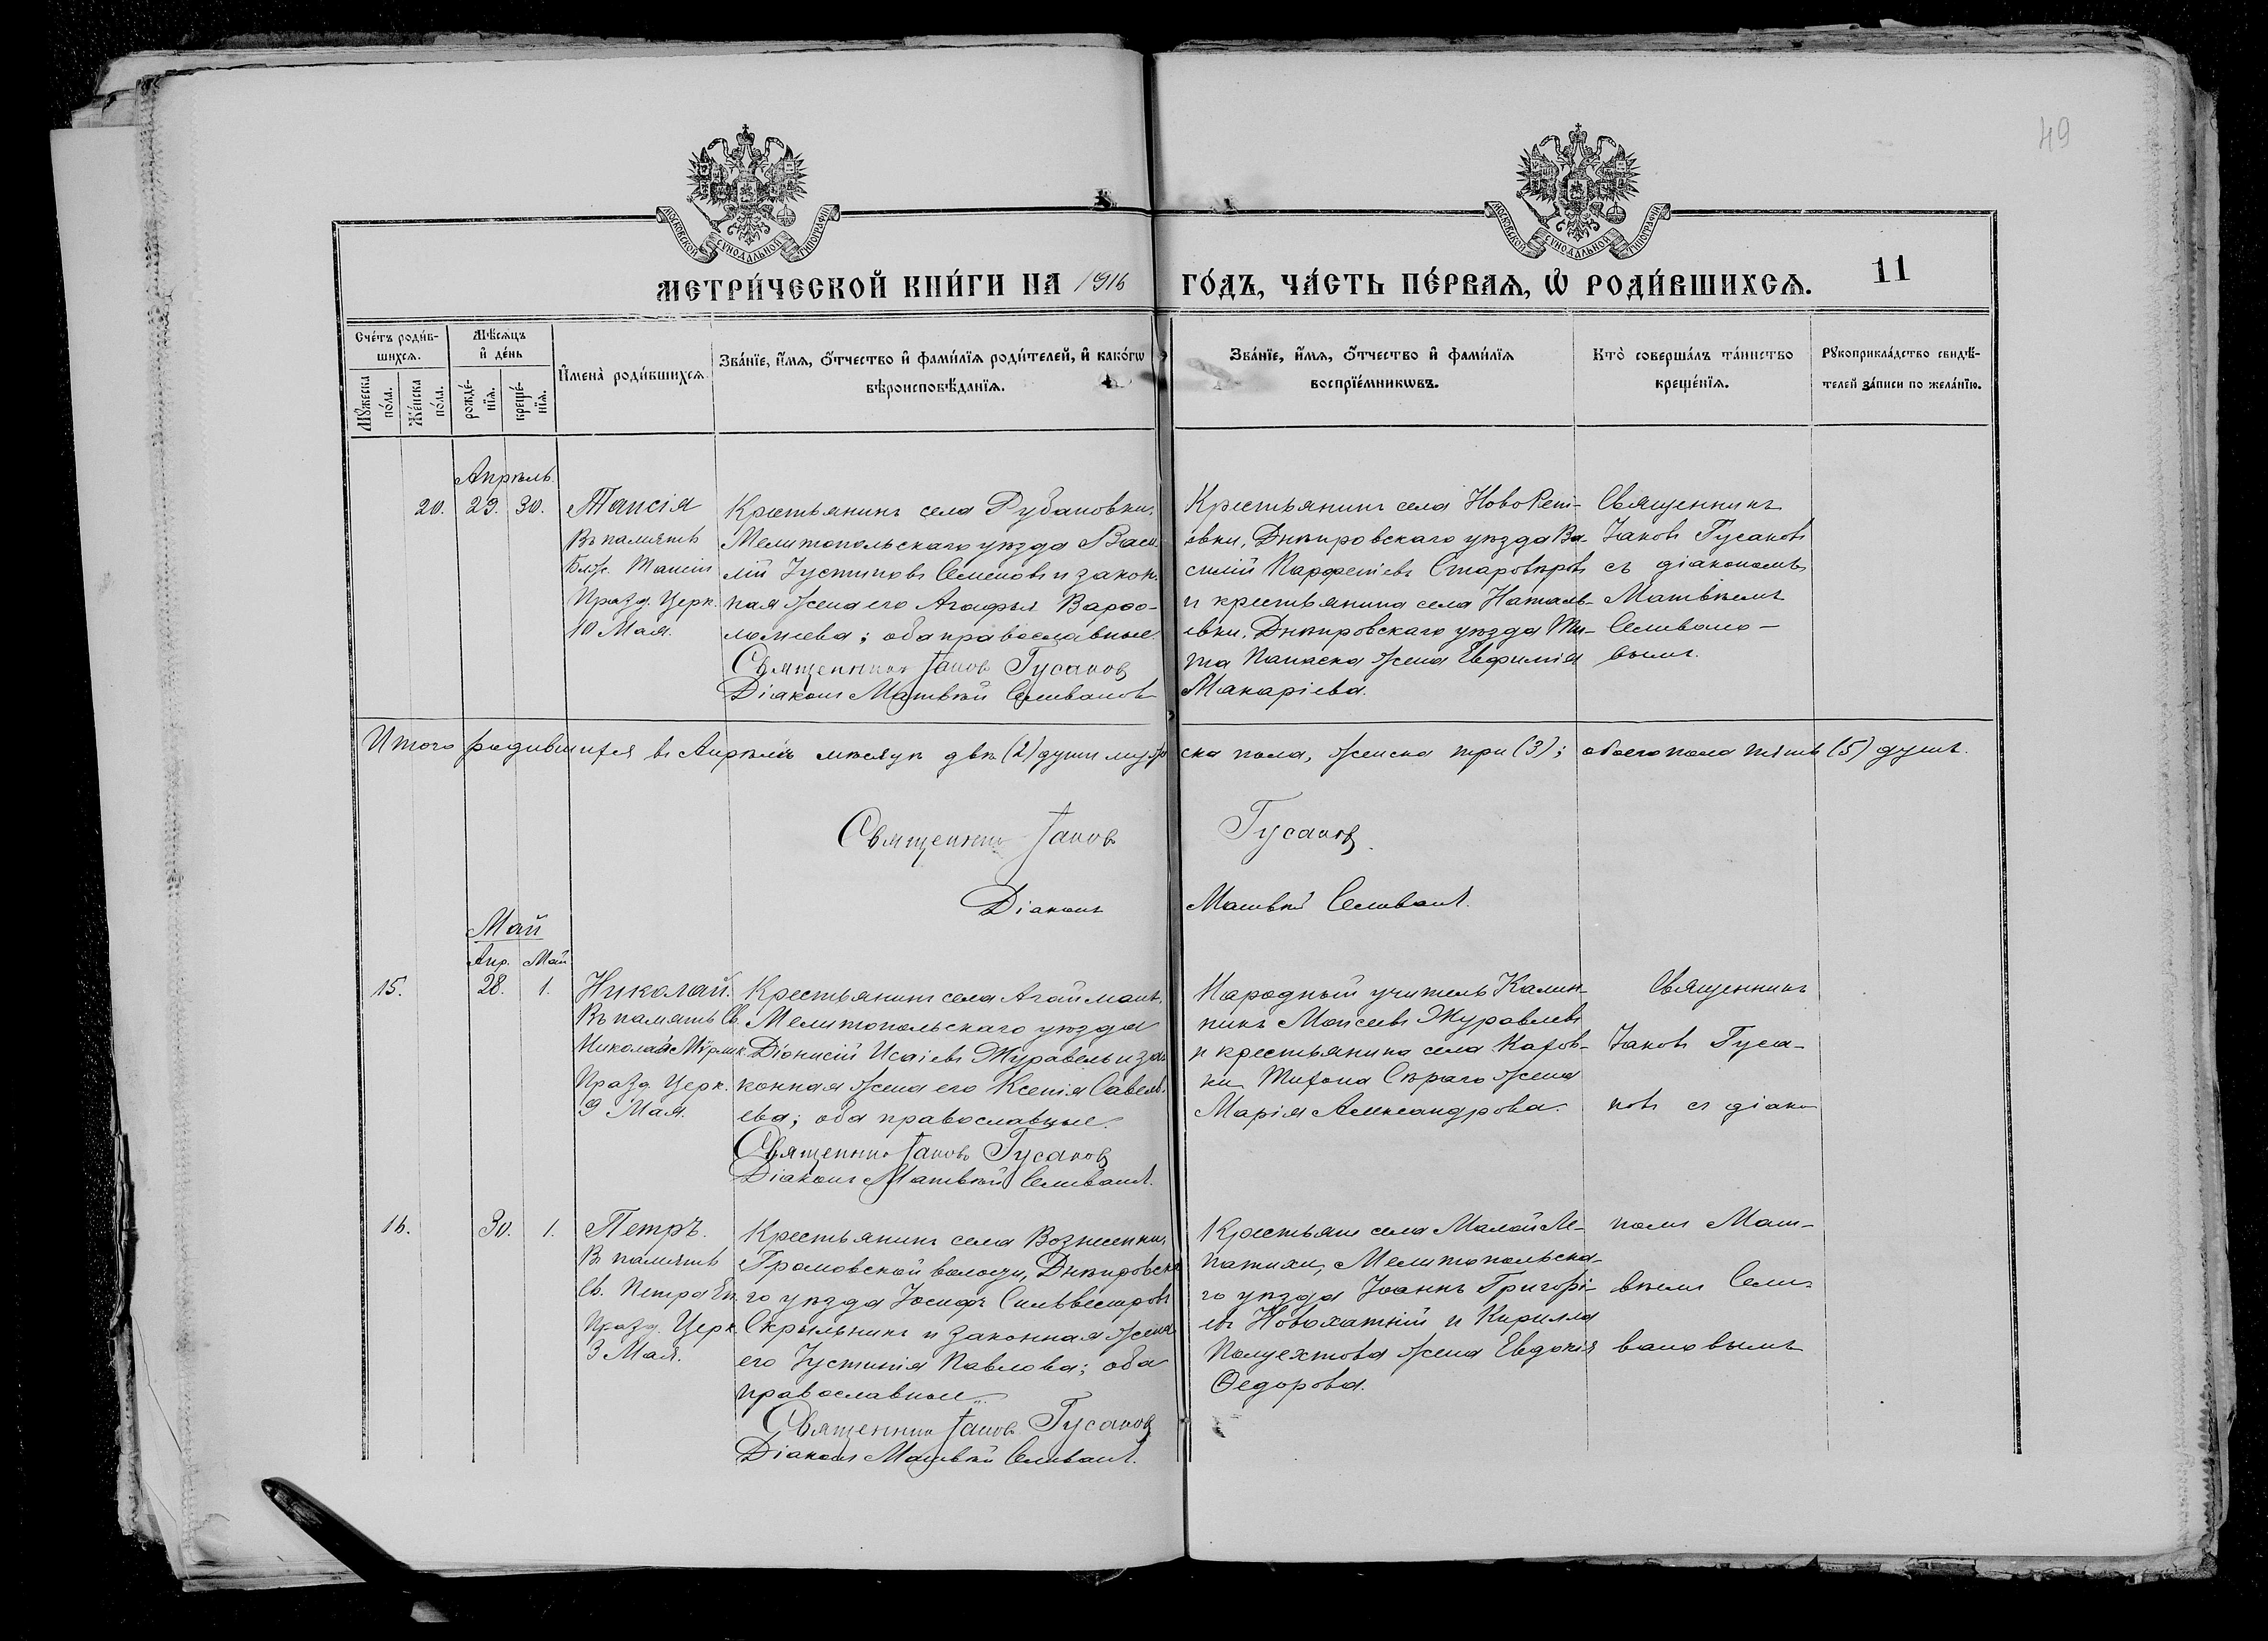 49
МОСКОВСКОЙ СѴНОДАЛЬНОЙ ТИПОГРАФІИ
МОСКОВСКОЙ СѴНОДАЛЬНОЙ ТИПОГРАФІИ
МЕТРИ́ЧЕСКОЙ КНИ́ГИ НА 1916 ГО́ДЪ, ЧА́СТЬ ПЕ́РВАѦ, Ѡ҆ РОДИ́ВШИХСѦ. 11
Сче́тъ роди́в-
шихсѧ.
Мꙋ́жеска
по́ла.
Же́нска
по́ла.
Мѣ́сѧцъ
и҆ де́нь
рожде́-
нїѧ.
креще́-
нїѧ.
И҆мена̀ роди́вшихсѧ.
Зва́нїе, и҆́мѧ, ѻ҆́тчество и҆ фами́лїѧ роди́телей, и҆ како́гѡ
вѣроисповѣ́данїѧ.
Зва́нїе, и҆́мѧ, ѻ҆́тчество и҆ фами́лїѧ
воспрїе́мникѡвъ.
Кто̀ соверша́лъ та́инство
креще́нїѧ.
Рꙋкоприкла́дство свидѣ́-
телей за́писи по жела́нїю.
Апрѣль.
20. 29. 30.
Таисія
Въ память
Блж. Таисіи
Празд. Церк.
10 Мая.
Крестьянинъ села Рубановки,
Мелитопольскаго уѣзда Васи-
лій Іустиновъ Семеновъ и закон-
ная жена его Агафья Варфо-
ломеева; оба православные.
Священникъ Іаковъ Гусаковъ
Діаконъ Матвѣй Селивановъ
Крестьянинъ села НовоРепі-
евки, Днѣпровскаго уѣзда Ва-
силій Парфеніевъ Старовѣровъ
и крестьянина села Наталь-
евки, Днѣпровскаго уѣзда Ти-
та жена Евфимія
Макаріева.
Священникъ
Іаковъ Гусаковъ
съ діакономъ
Матвѣемъ
Селивано-
вымъ.
Итого родившихся въ Апрѣлѣ мѣсяцѣ двѣ (2) души мужеска пола, женска три (3); обоего пола пять (5) душъ.
Священникъ Іаковъ Гусаковъ.
Діаконъ Матвѣй Селивановъ.
Май
Апр. Май
15. 28. 1.
Николай.
Въ память Св.
Николая Мѵрлик.
Празд. Церк.
9 Мая.
Крестьянинъ села Агаймана,
Мелитопольскаго уѣзда
Діонисій Исаіевъ Журавель и за-
конная жена его Ксенія Савель-
ева; оба православные.
Священникъ Іаковъ Гусаковъ
Діаконъ Матвѣй Селивановъ.
Народный учитель Калин-
никъ Моисеевъ Журавлевъ
и крестьянина села Кахов-
ки Тихона Сѣраго жена
Марія Александрова.
Священникъ
Іаковъ Гуса-
ковъ съ діако-
16. 30. 1.
Петръ.
Въ память
Св. Петра Еп.
Празд. Церк.
3 Мая.
Крестьянинъ села Вознесенки,
Громовской волости, Днѣпровска-
го уѣзда Іосифъ Сильвестровъ
Скрыльникъ и законная жена
его Іустинія Павлова; оба
православные.
Священникъ Іаковъ Гусаковъ
Діаконъ Матвѣй Селивановъ.
Крестьяне села Малой Ле-
патихи, Мелитопольска-
го уѣзда Іоаннъ Григорі-
евъ Новохатній и Кирилла
Полуехтова жена Евдокія
Ѳедорова.
номъ Мат-
вѣемъ Сели-
вановымъ